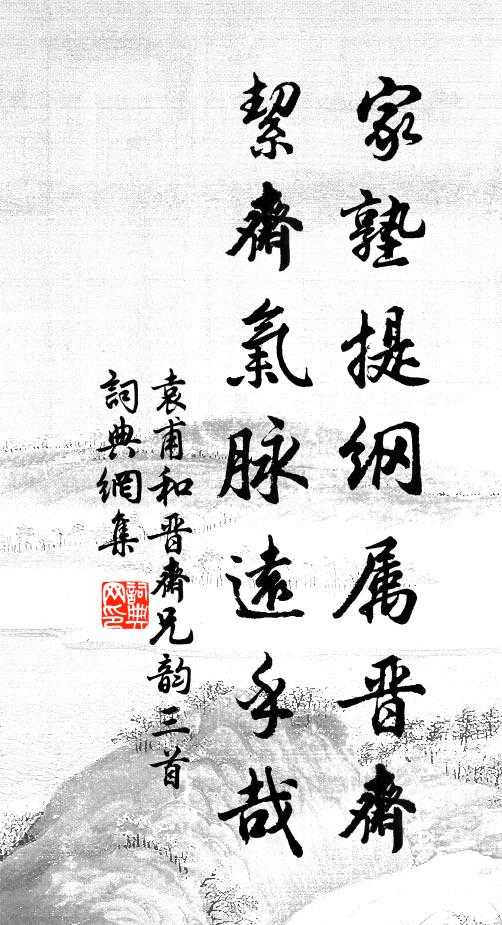 家塾提纲属晋齋
絜齋氣脉遠乎哉
袁甫和晋齋兄韵三首
詞典網集
詞典网印